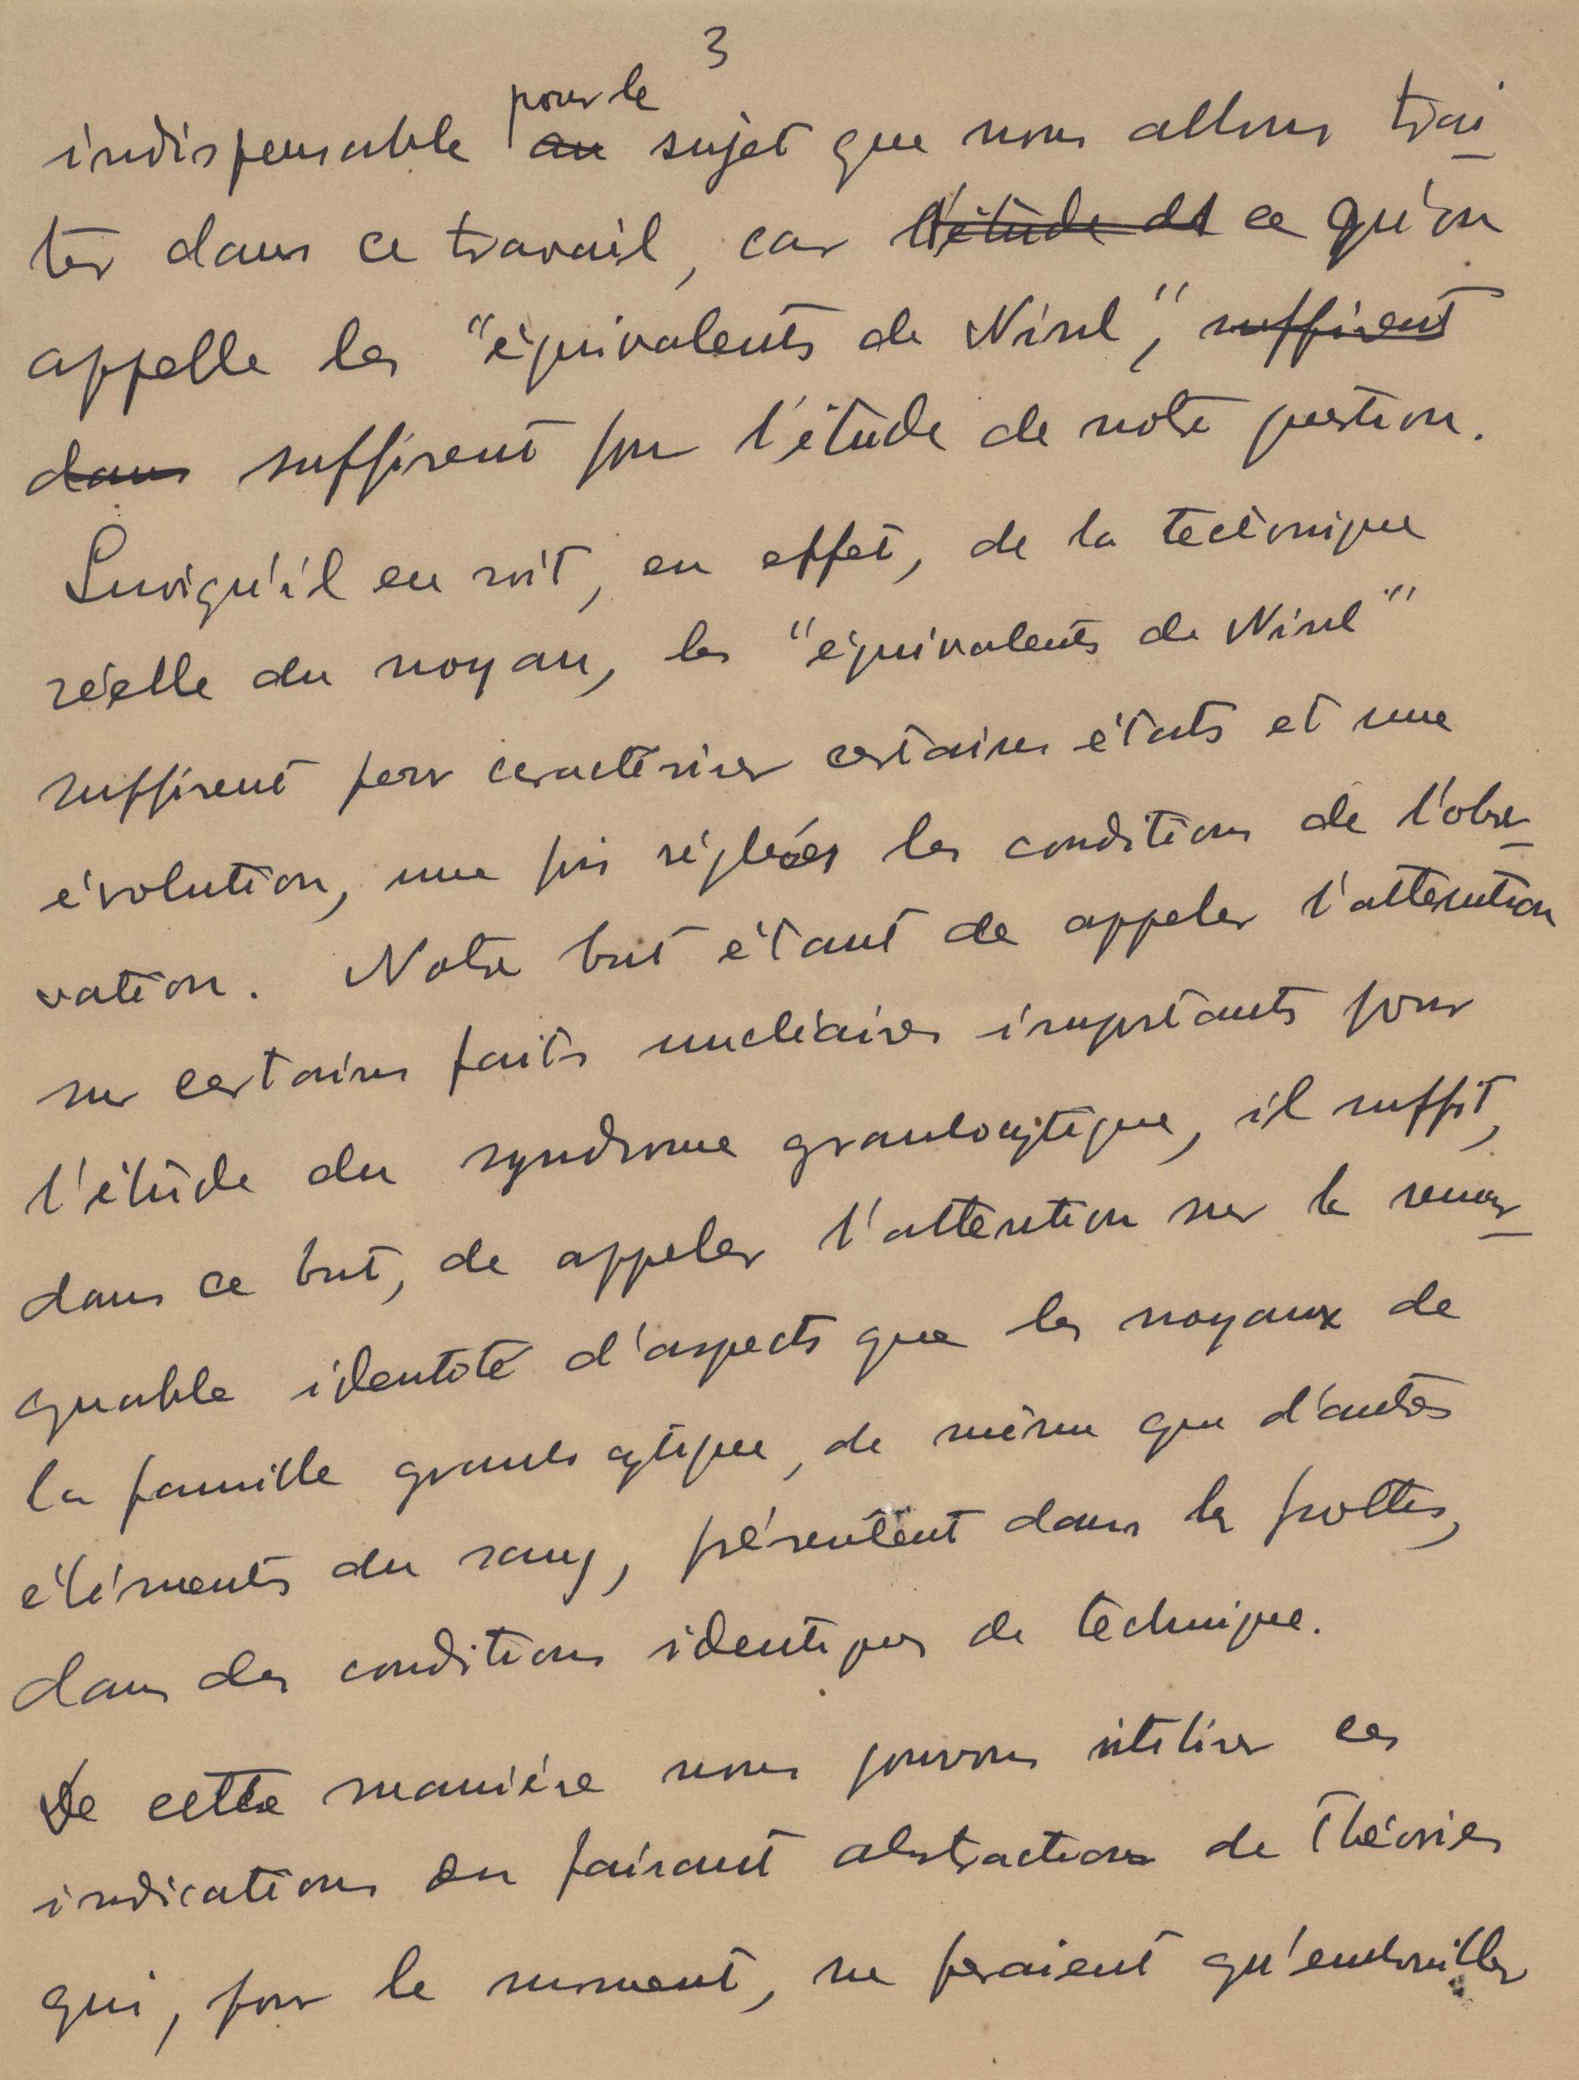 3
pour le
indispensable au sujet que nous allons trai
ter dans ce travail, car l'étude de ce qu'on
appelle les "équivalents de Nissl", suffisent
dans suffisent pour l'étude de notre question.
Quoiqu'il en soit, en effet, de la tectonique
réelle du noyau, les "équivalents de Nissl"
suffisent pour caractériser certaines états et une
évolution, une fois réglées les conditions de l'obser
vation. Notre but étant de appeler l'attention
sur certaines faits nucléaires importants pour
l'étude du syndrome granulocytique, il suffit,
dans ce but, de appeler l'attention sur la remar
quable identité d'aspects que les noyaux de
la famille granulocytique, de même que d'autres
éléments du sang, présentent dans les frottis,
dans des conditions identiques de technique.
De cette manière nous pouvons utiliser ces
indications en faisant abstraction de Théories
qui, pour le moment, ne feraient qu'embrouiller